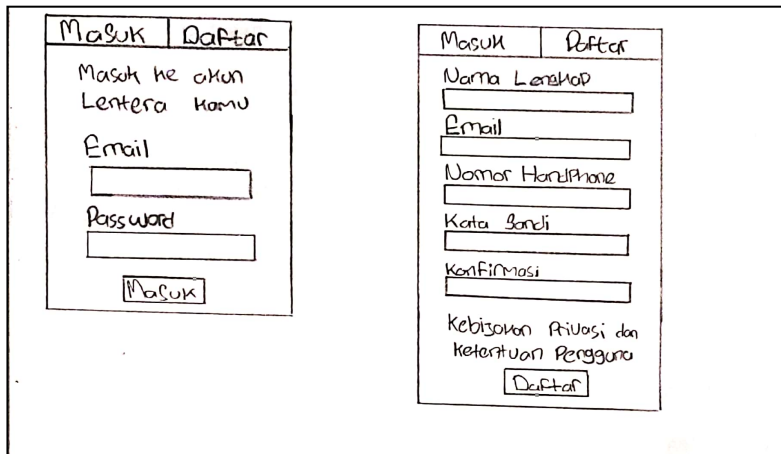 Masuk Daftar
Masuk ke akun
Lentera kamu
Email
Password
Masuk
Masuk Daftar
Nama Lengkap
Email
Nomor Handphone
Kata Sandi
Konfirmasi
Kebijakan Privasi dan
Ketentuan Pengguna
Daftar